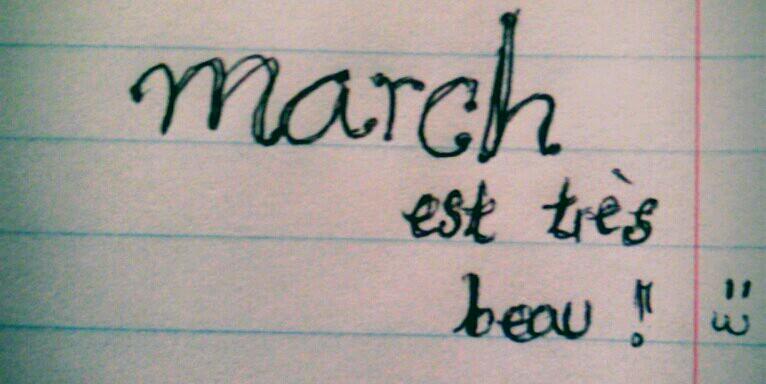 march
est très
beau ! "ω